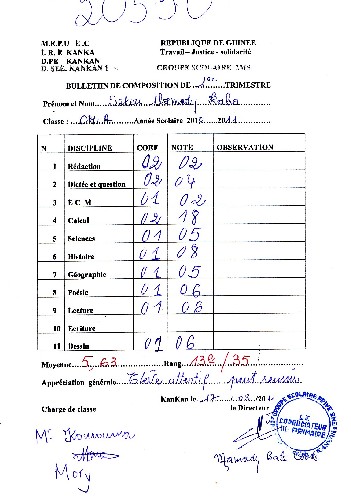 20550
M.E.P.U - E.C REPUBLIQUE DE GUINEE
I. R. E KANKA Travail – Justice - solidarité
D.PE - KANKAN
D. SEE. KANKAN GROUPE SCOLAIRE
BULLETIN DE COMPOSITION DE 1er TRIMESTRE
Prénom et Nom Mamady
Classe : Année Scolaire 2010 2011
N DISCIPLINE COEF NOTE OBSERVATION
1 Rédaction 02 02
2 Dictée et question 02 04
3 E C M 01 02
4 Calcul 02 18
5 Sciences 01 05
6 Histoire 01 08
7 Géographie 01 05
8 Poésie 01 06
9 Lecture 01 06
10 Ecriture
11 Dessin 01 06
Moyenne 5,63 Rang 13e /35
Appréciation générale peut
KanKan le 17 02
Charge de classe le Directeur
LE
COORDINATEUR
DU PRIMAIRE
Mr Kourouma
Mory
Mamady